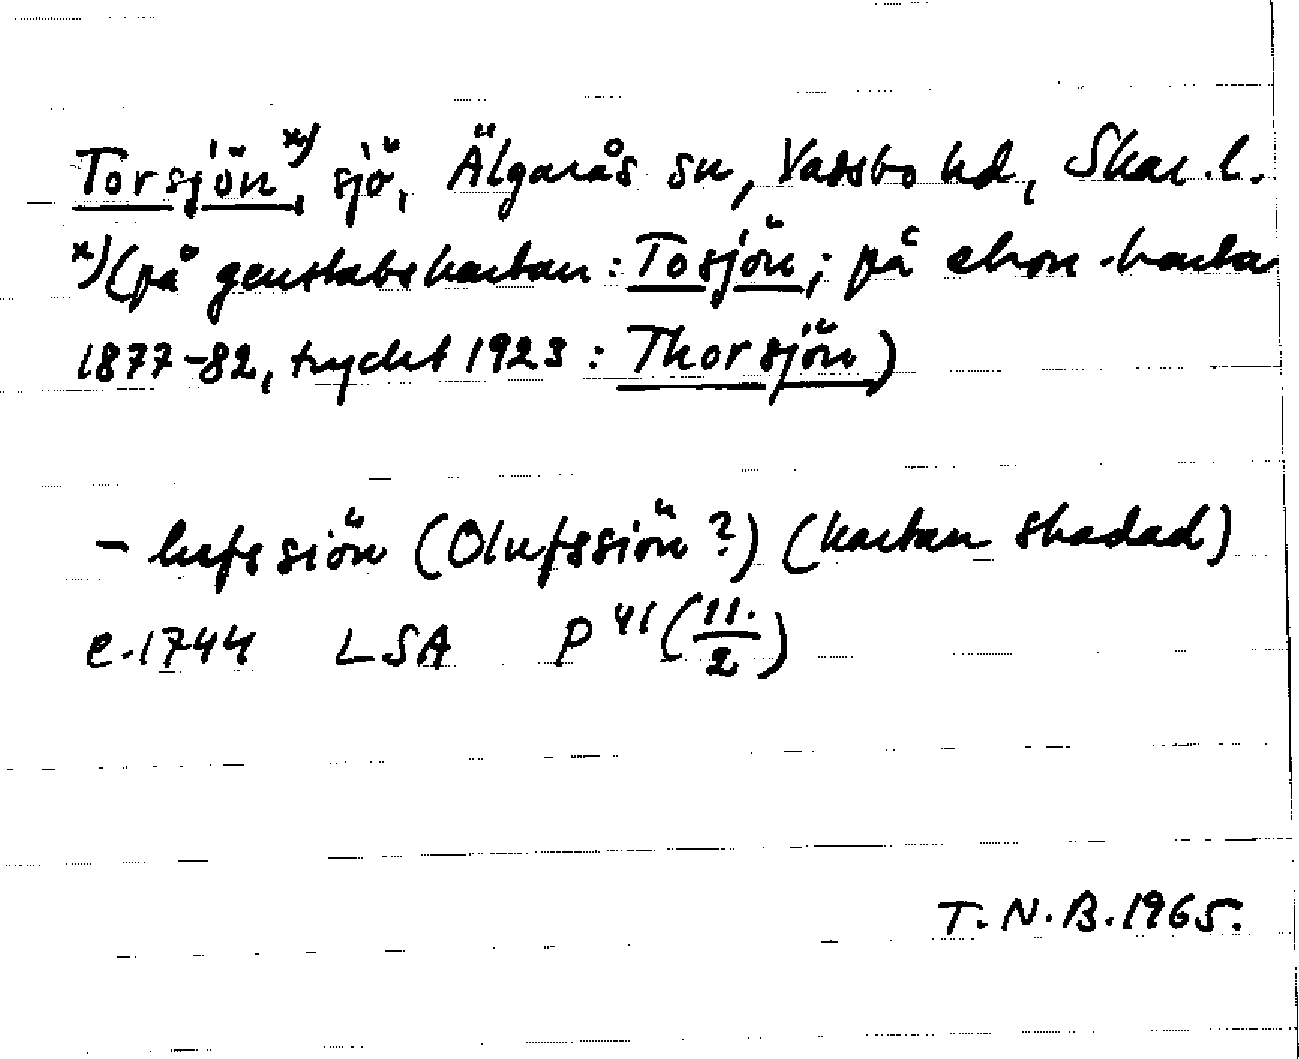 Torsjön,ˣ⁾ sjö, Älgarås sn, Vadsbo hd, Skar. l.
ˣ⁾(på genstabskartan: Tosjön; på ekon. karta
1877-82, tryckt 1923: Thorsjön)
- lufssiön (Olufssiön?) (kartan skadad)
e. 1744 LSA P 41 (11./2)
T. N. B. 1965.